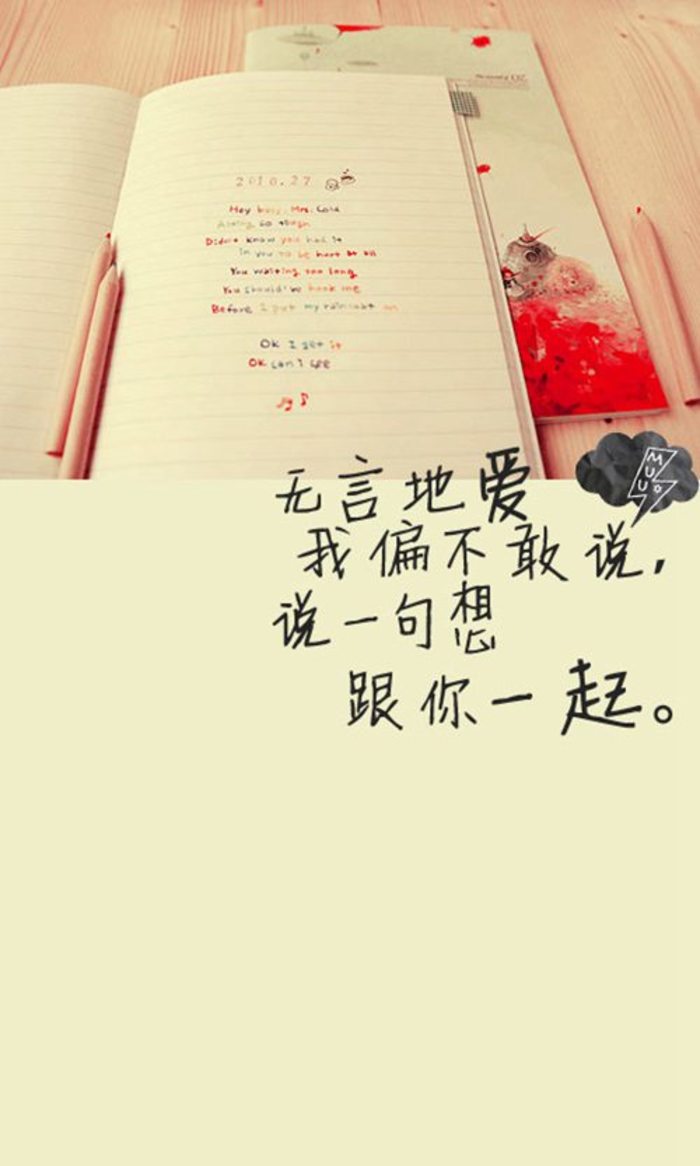 2010.27
Hey baby, Mrs. Cold
Acting so tough
Didn't know you had it
In you to be hurt at all
You waiting too long
You should've hook me
Before I put my raincoat on
OK I get it
OK can't see
无言地爱
我偏不敢说,
说一句想
跟你一起。